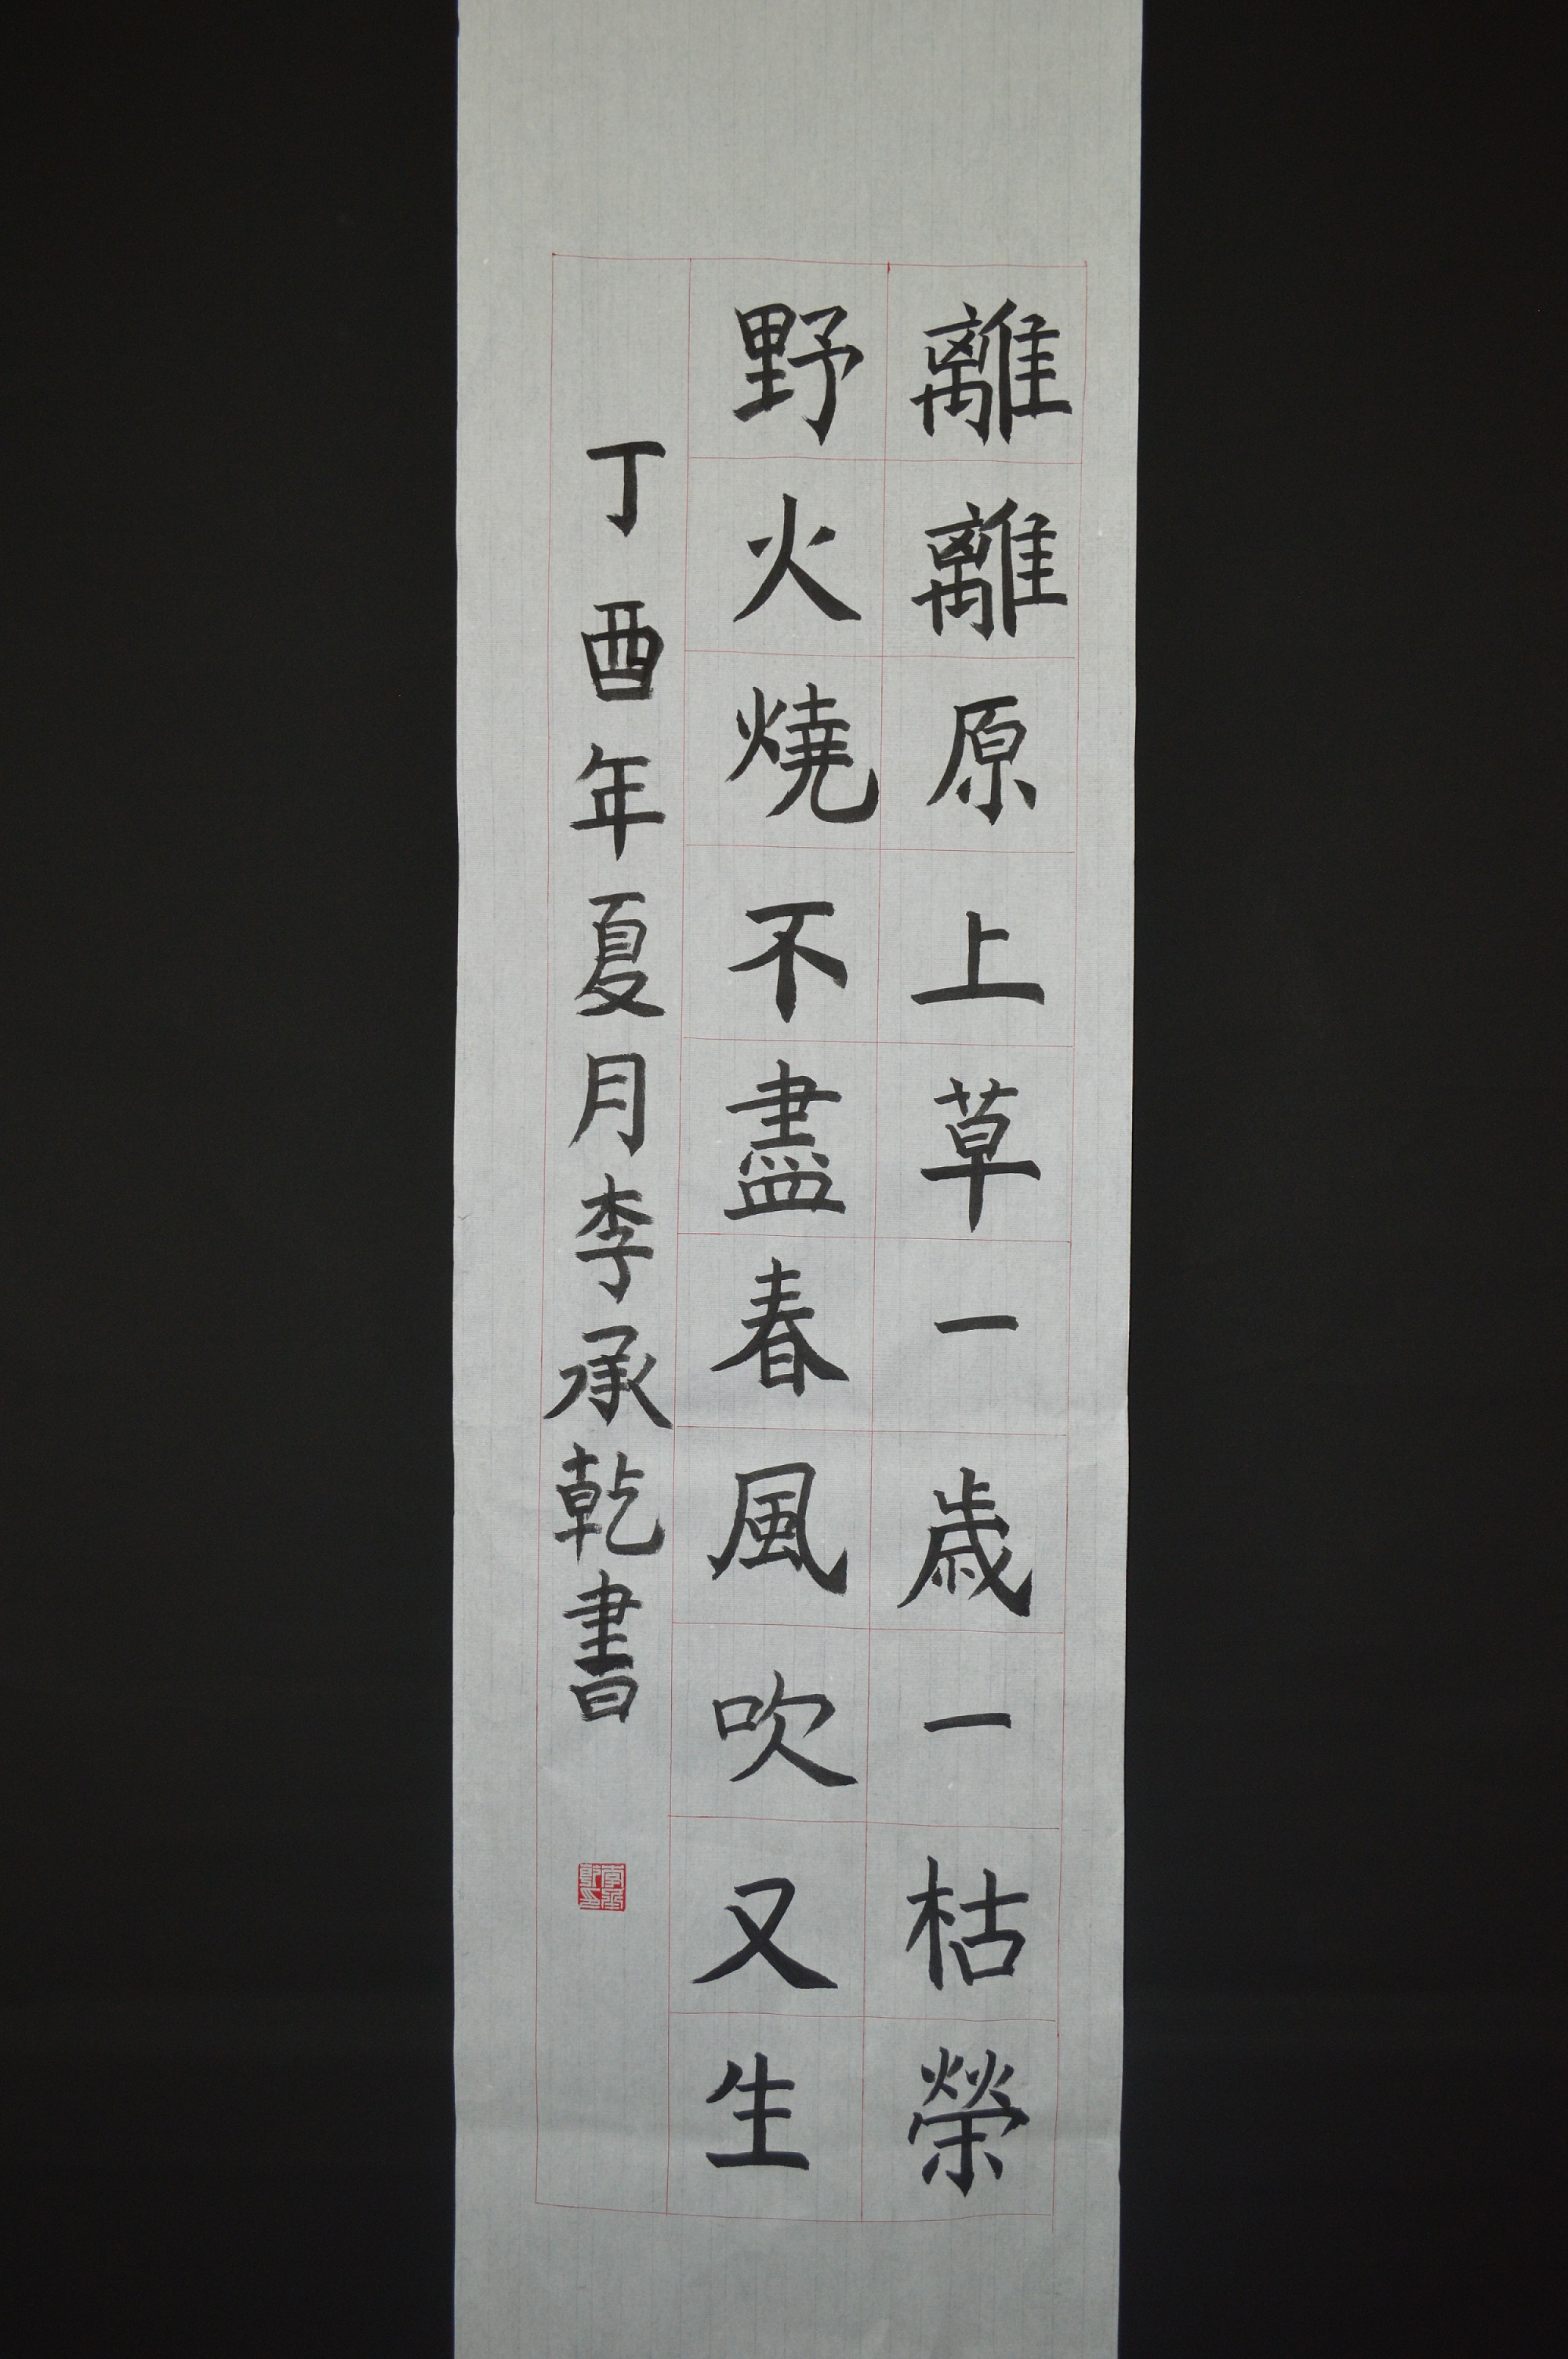 離離原上草一歳一枯榮
野火燒不盡春風吹又生
丁酉年夏月李承乾書